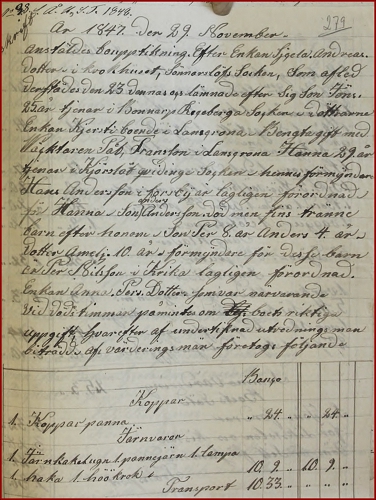 279
År 1847. den 29. November
anstäldes Boupptekning Efter Enkan Sigrla Andreas
dotter i krokhuset, Sonnarslöfs Socken, Som afled
derstädes den 23. dennas och lämnade efter Sig Son Thies
25 år tjenar i Bonnarp Rögeberga Socken i döttrarne
Enkan Kjersti boende i Lanscrona Bengta gift med
väcktaren Pål Fransson i Lanscrona Hanna 29 år
tjenar i Socken hennes förmyndare
Hans Andersson i är lagligen förordnad
Hanna Son Anders son död men fins tranne
barn efter honom Son Per 8. år Anders 4. år
dotter Ameli 10. år förmyndare för dessa barn
är Per Nilsson i Krika lagligen förordnad.
Enkan Anna Pers Dotter som var närvarande
vid vårdstimman påmintes om boets riktiga
uppgift hvarefter af undertiknad utredningsman
biträdd af värderingsmän företogs följande
Banco
Koppar
1. Koppar panna " 24. " " 24. "
Järnvaror
1. Järnkakelugn 1. pannejärn 1. lampa
1. haka 1. höökrok 10. 9. " 10. 9. "
Transport 10. 33. " "